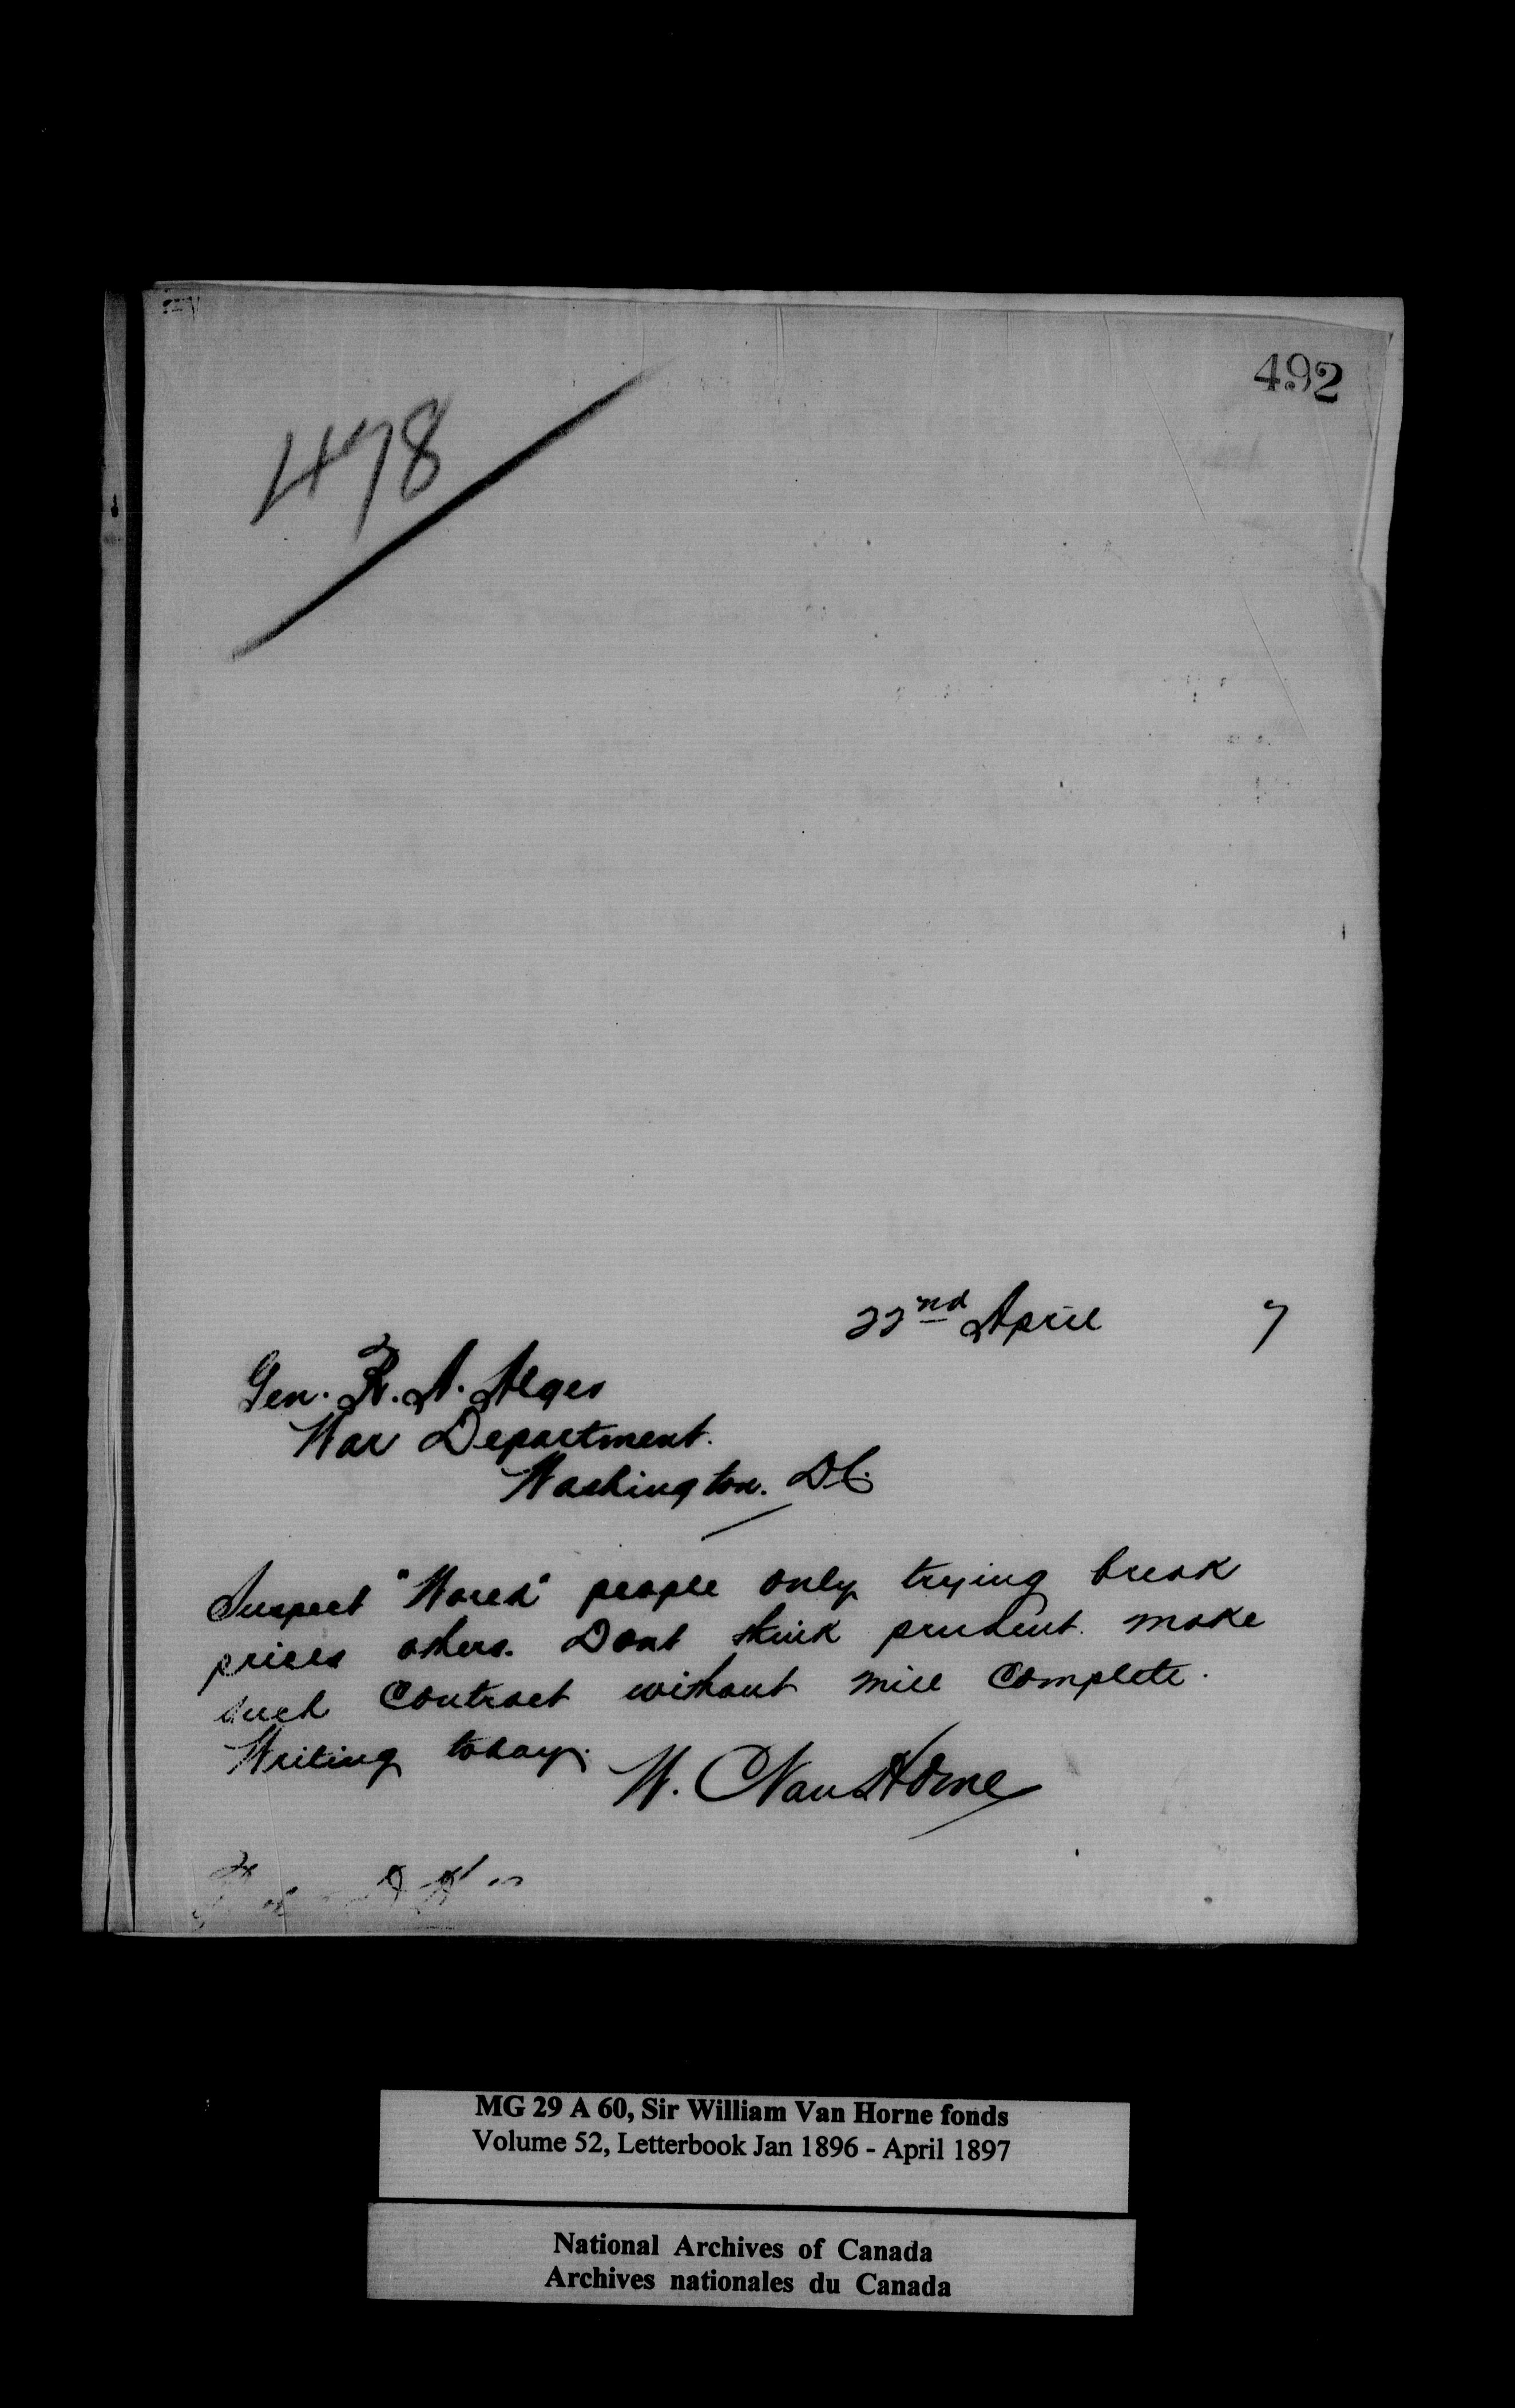 492
478
22nd April 7
Gen. R. A. Alger
War Department.
Washington. D.C.
Suspect "World" people only trying break
prices others. Dont think prudent make
such contract without mill complete.
Writing today.
W. C. Van Horne
MG 29 A 60, Sir William Van Horne fonds
Volume 52, Letterbook Jan 1896 - April 1897
National Archives of Canada
Archives nationales du Canada